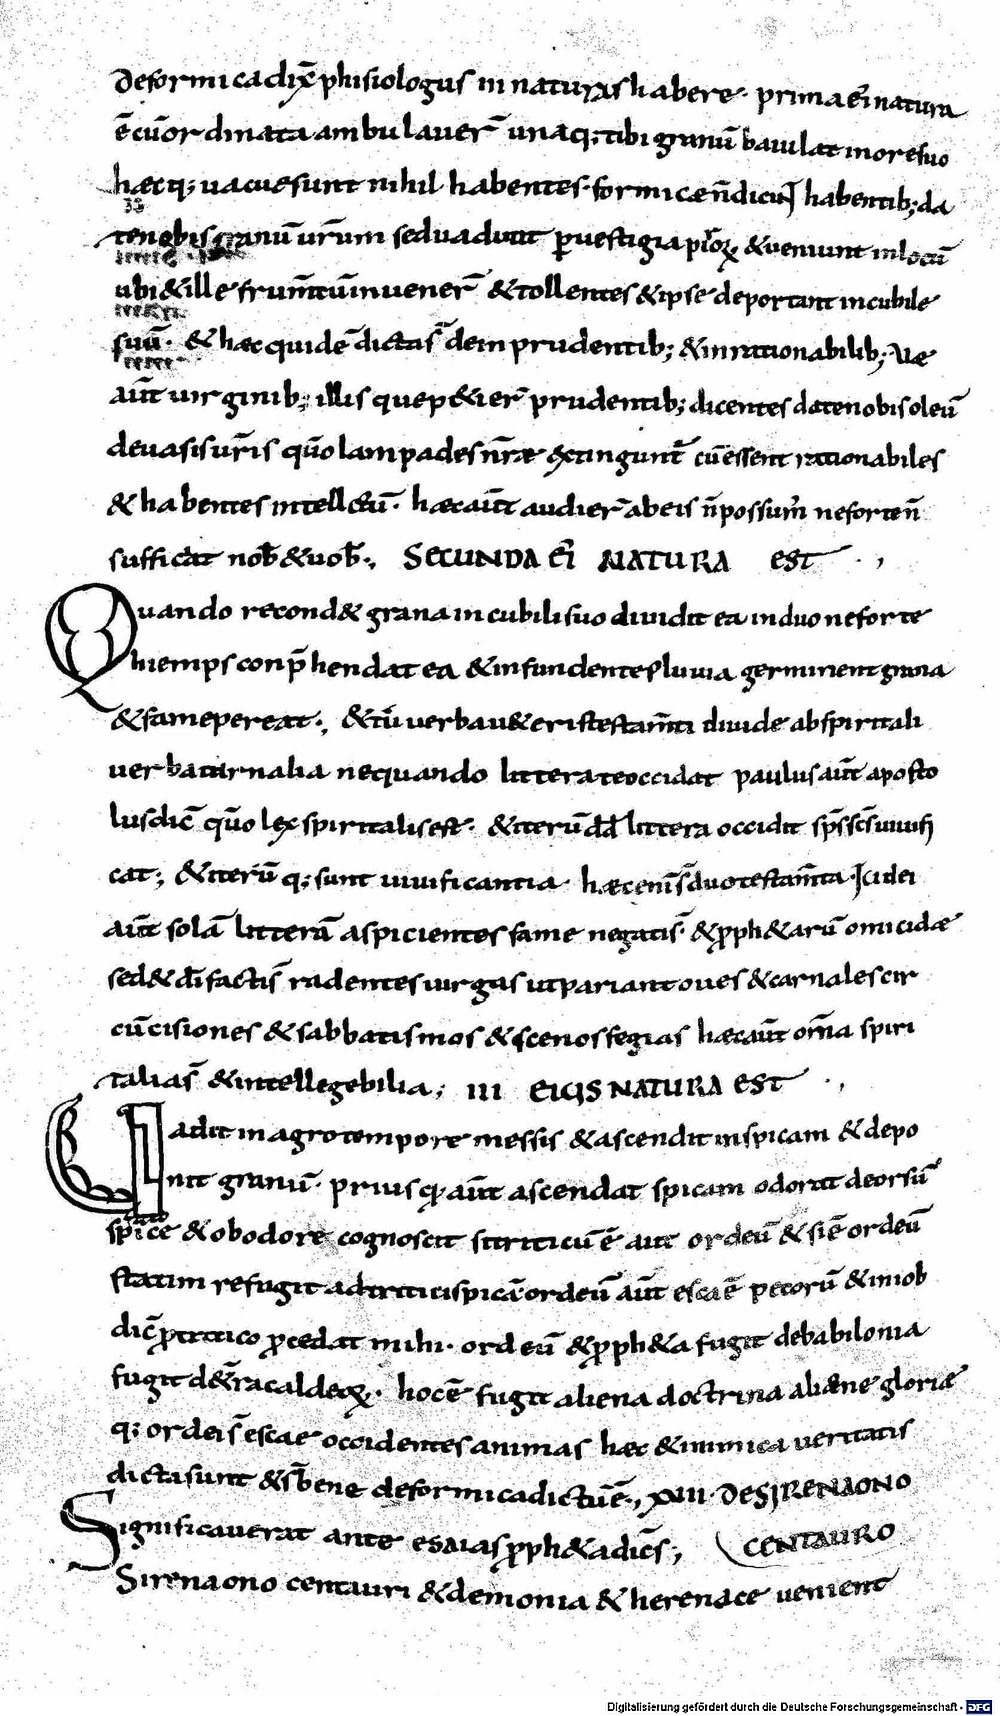 De formica dix̄ phisiologus iii naturas habere· prima eī natura
ē cū ordinata ambulauer̄ unaq; tibi granū baiulat in ore suo
hæcq; uacue sunt nihil habentes· formicæ n̄ dicu habentib; da
te nobis granū ur̄um sed uadunt ꝑ uestigia priorꝝ & ueniunt in locū
ubi & ille frum̄tū inuener̄ & tollentes & ipse deportant in cubile
suū· & hæc quidē dicta s̄ de inprudentib; & inrationabilib; Uæ
aūt uirginib; illis quep&ier̄ prudentib; dicentes date nobis oleū
de uasis ur̄is qūo lampades nr̄æ extingunt̄ cū essent rationabiles
& habentes intellectū· hæc aūt audier̄ ab eis n̄ possum̄ ne forte n̄
sufficiat nob̄ & uob̄·, SECUNDA EĪ NATURA EST ·,
Quando recond& grana in cubili suo diuidit ea in duo ne forte
hiemps conp̄hendat ea & infundente pluuia germinent grana
& fame pereat·, & tū uerba u&eris testam̄ti diuide ab spiritali
uerba carnalia nequando littera te occidat paulus aūt aposto
lus dic̄ qūo lex spiritalis est· & iterū dd̄ littera occidit sp̄s sc̄s uiuifi
cat·, & iterū q; sunt uiuificantia· hæc enim s̄ duo testam̄ta· Iudei
aūt solā litterā aspicientes fame negati s̄· & ꝓph&arū omicidæ
sed & dī facti s̄ radentes uirgas ut pariant oues & carnales cir
cūcisiones & sabbatismos & scenosfegias hæc aūt om̄a spiri
talia s̄ & intellegebilia; III EIUS NATURA EST ·,
Uadit in agro tempore messis & ascendit in spicam & depo
nit granū· prius q̄ aūt ascendat spicam odorat deorsū
spice & ob odore cognoscit si triticū ē aut ordeū & si ē ordeū
statim refugit ad tritici spicā ordeū aūt esca ē pecorū & in iob
dic̄ ꝓ tritico ꝓcedat mihi· ordeū & ꝓph&a fugit de babilonia
fugit de t̄ra caldeoꝝ·· hoc ē fugit aliena doctrina aliæne gloriæ
q; ordei s̄ escae occidentes animas hæc & inimica ueritatis
dicta sunt & s̄ bene de formica dictū ē·, XIII· DE SIRENA ONO
Significauerat ante esaias ꝓph&a dicēs; CENTAURO
Sirena ono centauri & demonia & herenace uenient
Digitalisierung gefördert durch die Deutsche Forschungsgemeinschaft - DFG